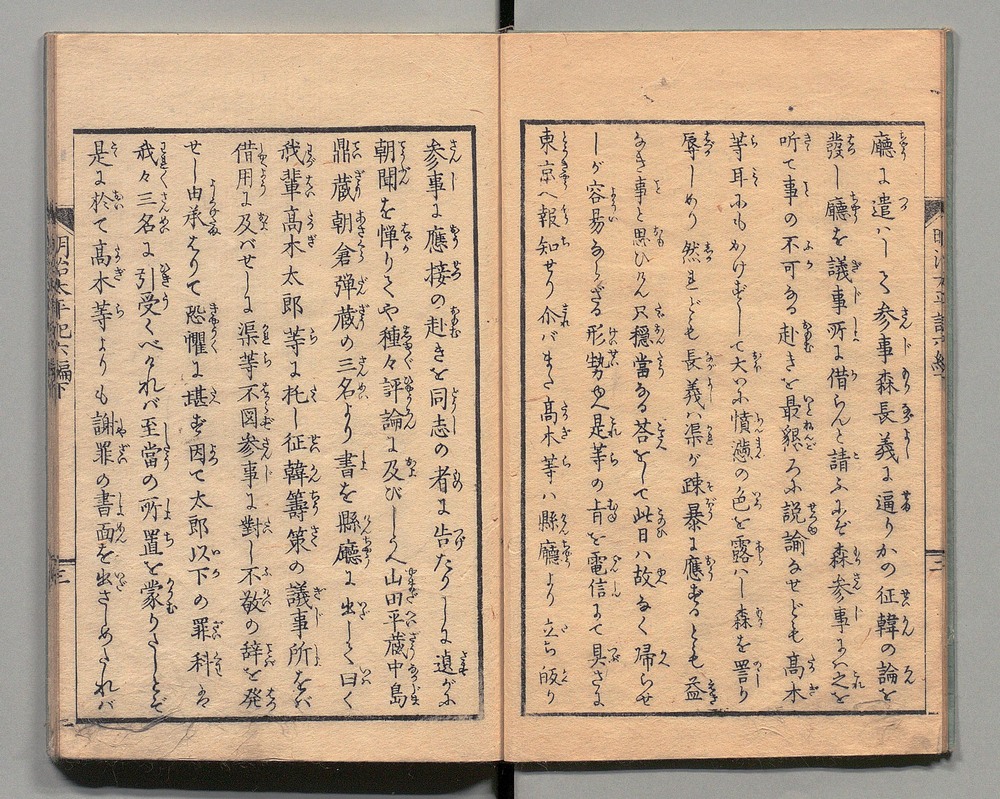 廳に遣ハして参事森長義に逼りかの征韓の論を
發し廳を議事所に借らんと請ふにぞ森参事にハ之を
听て事の不可なる赴きを最懇ろに説諭なせども高木
等耳にもかけずして大いに憤懣の色を露ハし森を罟り
辱しめり然れども長義ハ渠が疎暴に應ずるとも益
なき事と思ひけん只穏當なる荅をして此日ハ故なく帰らせ
しが容易ならざる形勢ゆゑ是等の旨を電信にて具さに
東京へ報知せり尒バまた高木等ハ縣廳より立ち皈り
参事に應接の赴きを同志の者に告たりしに遉がに
朝聞を憚りてや種々評論に及びしうへ山田平蔵中島
鼎蔵朝倉弾蔵の三名より書を縣廳に出して曰く
我輩高木太郎等に托し征韓籌策の議事所をバ
借用に及バせしに渠等不図参事に對し不敬の辞を発
せし由承はりて恐懼に堪ず因て太郎以下の罪科ハ
我々三名に引受くべけれバ至當の所置を蒙りたしとぞ
是に於て高木等よりも謝罪の書面を出さしめたれバ
明治太平記六編下
三